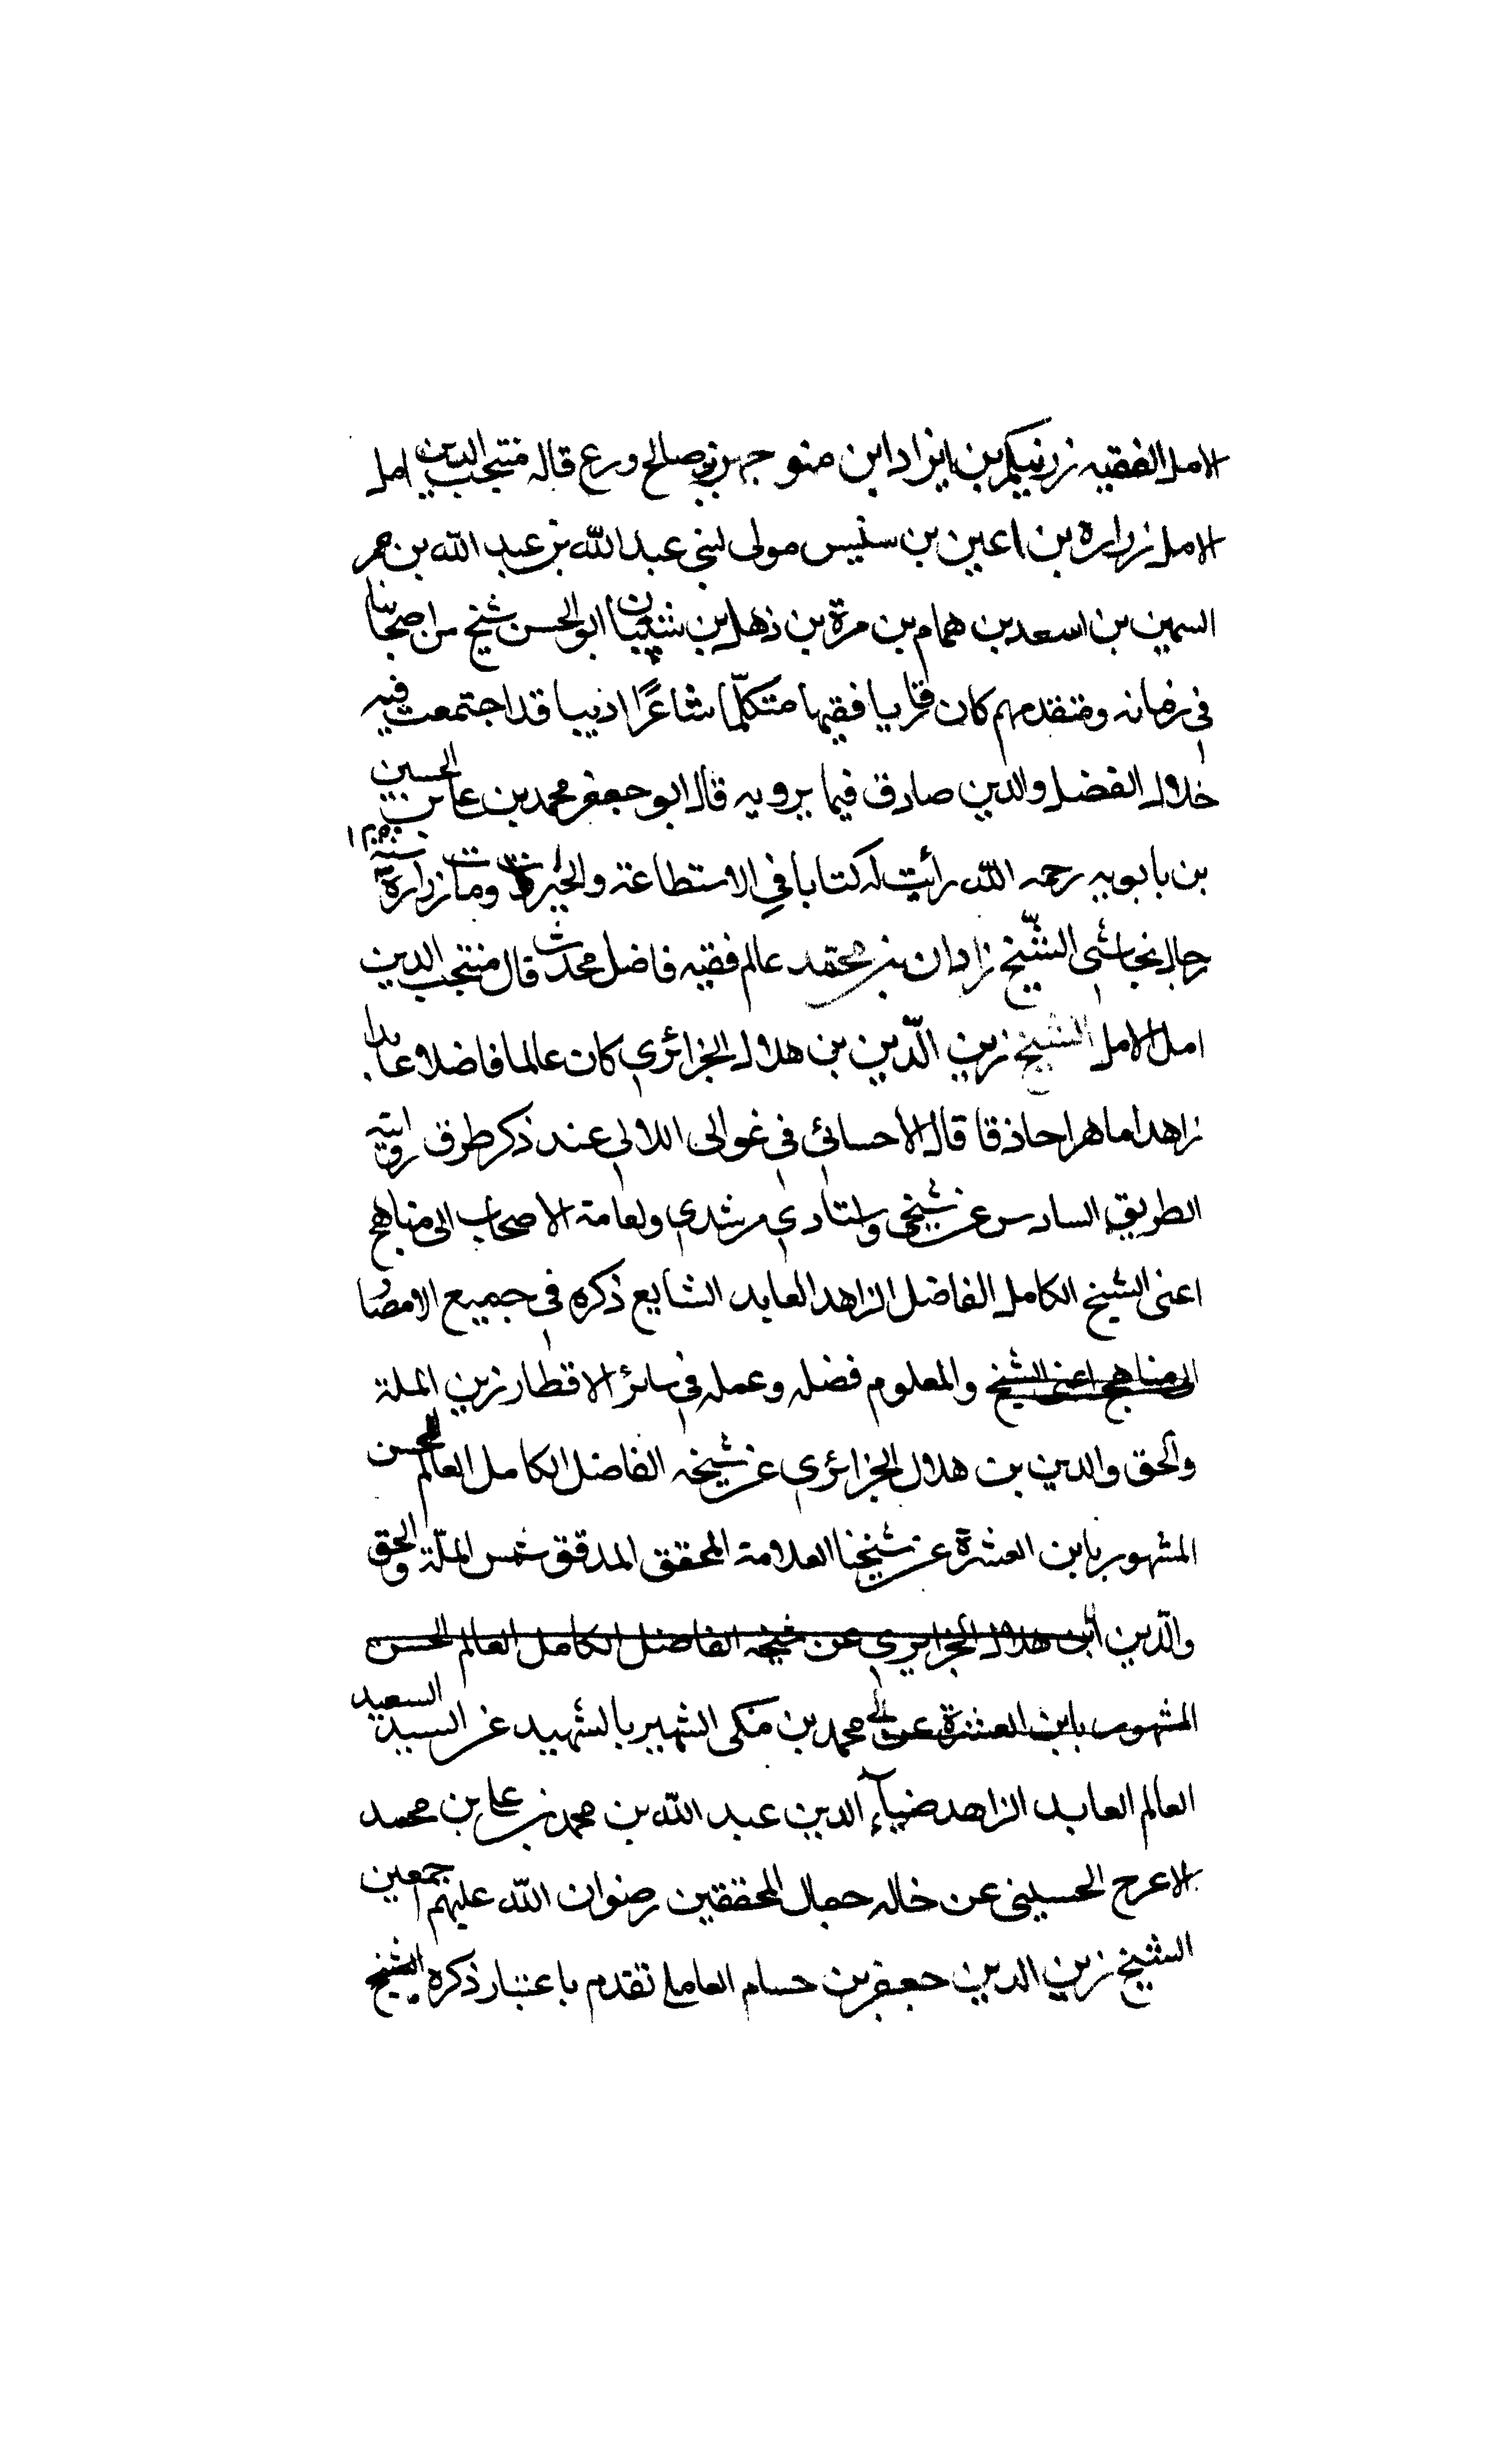 الامل الفقيه زرنيكم بن ايزاد ابن منوجهر بزير صالح ورع قاله منتجب الدين امل
الامل زرارة بن اعين بن سنيس مولى لبني عبد الله بن عبد الله بن عمر
السمين بن اسعد بن همام بن مرة بن ذهل بن شيبان ابو الحسن شيخ من اصحابنا
في زمانه ومتقدمهم كان قاريا فقيها متكلّما شاعرًا اديبا قد اجتمعت فيه
خلال الفضل والدين صادق فيما يرويه قال ابو جعفر محمد بن علي بن الحسين
بن بابويه رحمه الله رأيت له كتابا في الاستطاعة والجبر ومات زرارة سنة ١٥٠
رجال نجاشي الشّيخ زادان بن محمد عالم فقيه فاضل محدث قال منتجب الدين
امل الامل الشيخ زين الدّين بن هلال الجزائري كان عالما فاضلا عابدا
زاهدا ماهرا حاذقا قال الأحسائي في غوالي اللالي عند ذكر طرق روايته
الطريق السادس عن شيخي واستادي مرشدي ولعامة الاصحاب الى مناهج
اعني الشيخ الكامل الفاضل الزاهد العابد الشايع ذكره في جميع الامصار
الى مناهج اعني الشيخ والمعلوم فضله وعمله في سائر الاقطار زين الملة
والحق والدين بن هلال الجزائري عن شيخه الفاضل الكامل العالم الحسن
المشهور بابن العشرة عن شيخنا العلامة المحقق المدقق شمس الملّة والحق
والدّين ابن هلال الجزايري عن شيخه الفاضل الكامل العالم الحسن
المشهور بابن العشرة عن محمد بن مكى الشهير بالشهيد عن السيد السعيد
العالم العابد الزاهد ضياء الدين عبد الله بن محمد بن علي بن محمد
الاعرج الحسيني عن خاله جمال المحققين رضوان الله عليهم اجمعين
الشيخ زين الدين جعفر بن حسام العاملي تقدم باعتبار ذكره الشيخ